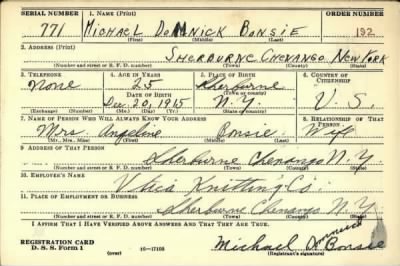 SERIAL NUMBER 1. NAME (Print) ORDER NUMBER
771 MICHAEL DOMINICK BONSIE 192
(First) (Middle) (Last)
2. ADDRESS (Print)
SHERBURNE CHENANGO NEW YORK
(Number and street or R. F. D. number) (Town) (County) (State)
3. TELEPHONE 4. AGE IN YEARS 5. PLACE OF BIRTH 6. COUNTRY OF CITIZENSHIP
None 25 Sherburne
DATE OF BIRTH (Town or county)
Dec. 20, 1915 N.Y. U.S.
(Exchange) (Number) (Mo.) (Day) (Yr.) (State or country)
7. NAME OF PERSON WHO WILL ALWAYS KNOW YOUR ADDRESS 8. RELATIONSHIP OF THAT PERSON
Mrs. Angeline Bonsie Wife
(Mr., Mrs., Miss) (First) (Middle) (Last)
9. ADDRESS OF THAT PERSON
Sherburne Chenango N.Y.
(Number and street or R. F. D. number) (Town) (County) (State)
10. EMPLOYER'S NAME
Utica Knitting Co.
11. PLACE OF EMPLOYMENT OR BUSINESS
Sherburne Chenango N.Y.
(Number and street or R. F. D. number) (Town) (County) (State)
I AFFIRM THAT I HAVE VERIFIED ABOVE ANSWERS AND THAT THEY ARE TRUE.
REGISTRATION CARD
D. S. S. Form 1 (over) 16—17105 Michael Bonsie
(Registrant's signature)